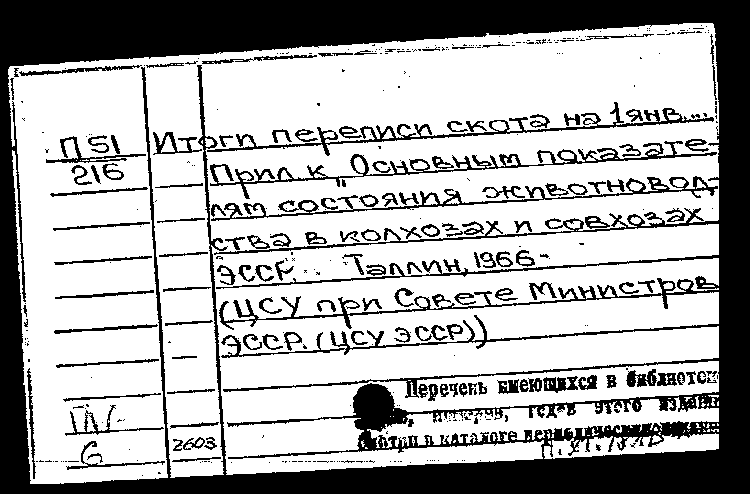 П51 Итоги переписи скота на 1янв....
216 Прил. к „Основным показате-
лям состояния животновод-
ства в колхозах и совхозах
ЭССР. Таллин, 1966-
(ЦСУ при Совете Министров
ЭССР. (ЦСУ ЭССР))
Перечень имеющихся в библиотеке
номеров, годов этого издания
смотри в каталоге периодических изданий
6 2603